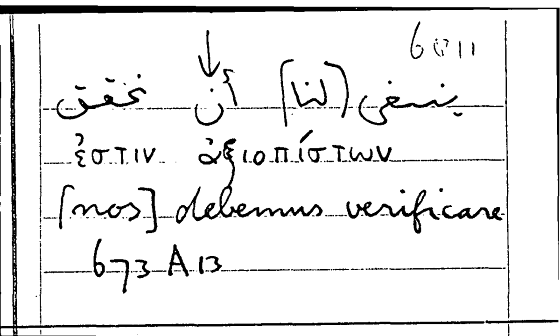 ينبغى [لنا] أن نحقق
ἐστιν ἀξιοπίστων
[nos] debemus verificare
673 A 13